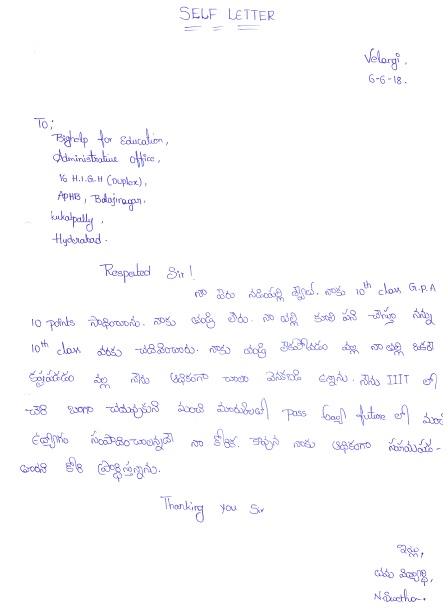 SELF LETTER
Velargi.
6-6-18.
To;
Bighelp for Education,
Administrative Office,
1/6 H.I.G.H (Duplex),
APHB, Balajinagar.
kukatpally,
Hyderabad.
Respected Sir!
నా పేరు నడిపల్లి. నాకు 10th class G.P.A
10 points సాధించాను. నాకు తండ్రి లేరు. నా తల్లి కూలి పని చేస్తూ నన్ను
10th class వరకు చదివించారు. నాకు తండ్రి లేకపోవడం వల్ల నా తల్లి ఒకరే
కష్టపడడం వల్ల నేను ఆర్థికంగా చాలా వెనుకబడి ఉన్నాను. నేను IIIT లో
చేరి బాగా చదువుకుని మంచి మార్కులతో pass future లో మంచి
ఉద్యోగం సంపాదించాలన్నదే నా కోరిక. కావున నాకు ఆర్థికంగా సహాయపడ-
తారని కోరి ప్రార్థిస్తున్నాను.
Thanking you Sir
ఇట్లు,
తమ విద్యార్థి,
N.Swetha.